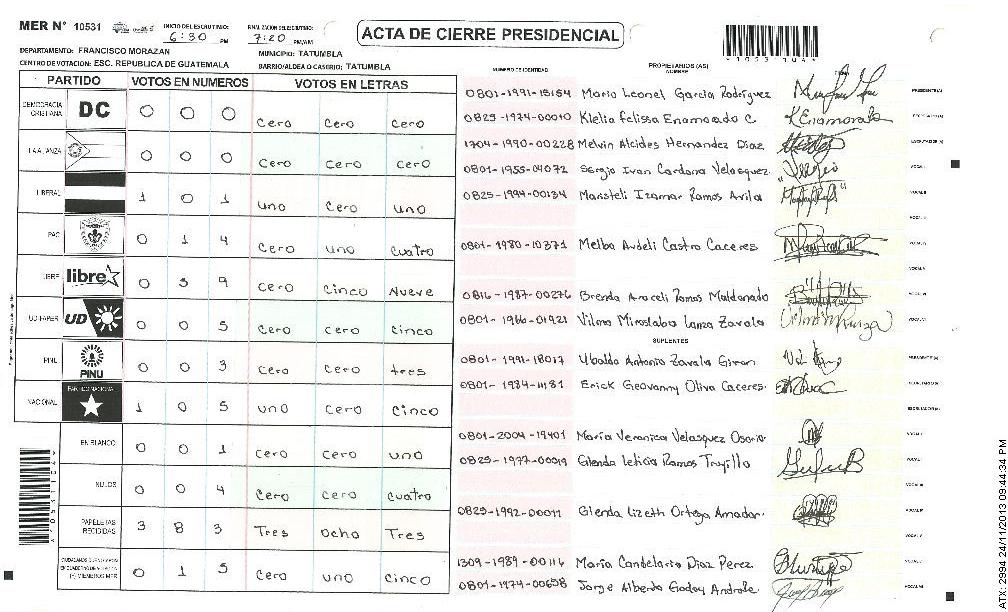 MER N° 10531
INICIO DEL ESCRUTINIO: 6:30 PM
FINALIZACION DEL ESCRUTINIO: 7:20 PM/AM
ACTA DE CIERRE PRESIDENCIAL
DEPARTAMENTO: FRANCISCO MORAZAN
MUNICIPIO: TATUMBLA
CENTRO DE VOTACION: ESC. REPUBLICA DE GUATEMALA
BARRIO/ALDEA O CASERIO: TATUMBLA
PARTIDO VOTOS EN NUMEROS VOTOS EN LETRAS
DEMOCRACIA CRISTIANA DC 0 0 0 Cero Cero Cero
LA ALIANZA 0 0 0 Cero Cero Cero
LIBERAL 1 0 1 uno Cero uno
PAC 0 1 4 Cero uno cuatro
LIBRE libre 0 5 9 Cero Cinco Nueve
UD-FAPER UD 0 0 5 Cero Cero Cinco
PINU PINU 0 0 3 Cero Cero tres
NACIONAL PARTIDO NACIONAL 1 0 5 uno Cero Cinco
EN BLANCO 0 0 1 Cero Cero uno
NULOS 0 0 4 Cero Cero Cuatro
PAPELETAS RECIBIDAS 3 8 3 Tres ocho Tres
0 1 5 Cero uno Cinco
NUMERO DE IDENTIDAD
PROPIETARIOS (AS)
NOMBRE
0801-1991-15154 Mario Leonel Garcia Rodriguez
0825-1974-00010 Klelia Felissa Enamorado C
1704-1990-00228 Melvin Alcides Hernandez Diaz
0801-1955-04072 Sergio Ivan Cardona Velasquez
0825-1994-00134 Maristeli Izamar Ramos Avila
0801-1980-10371 Melba Ardeli Castro Caceres
0816-1987-00276 Brenda Araceli Ramos Maldonado
0801-1966-01921 Vilma Miroslaba Lanza Zavala
SUPLENTES
0801-1991-18017 Ubaldo Antonio Zavala Giron
0801-1984-11181 Erick Geovanny Oliva Caceres
0801-2004-19401 Maria Veronica Velasquez Osorio
0825-1977-00019 Glenda Leticia Ramos Trujillo
0825-1992-00011 Glenda Lizeth Ortega Amador
1309-1989-00116 Maria Candelaria Diaz Perez
0801-1974-00658 Jorge Alberto Godoy Andrade
ATX: 2994 24/11/2013 09:44:34 PM